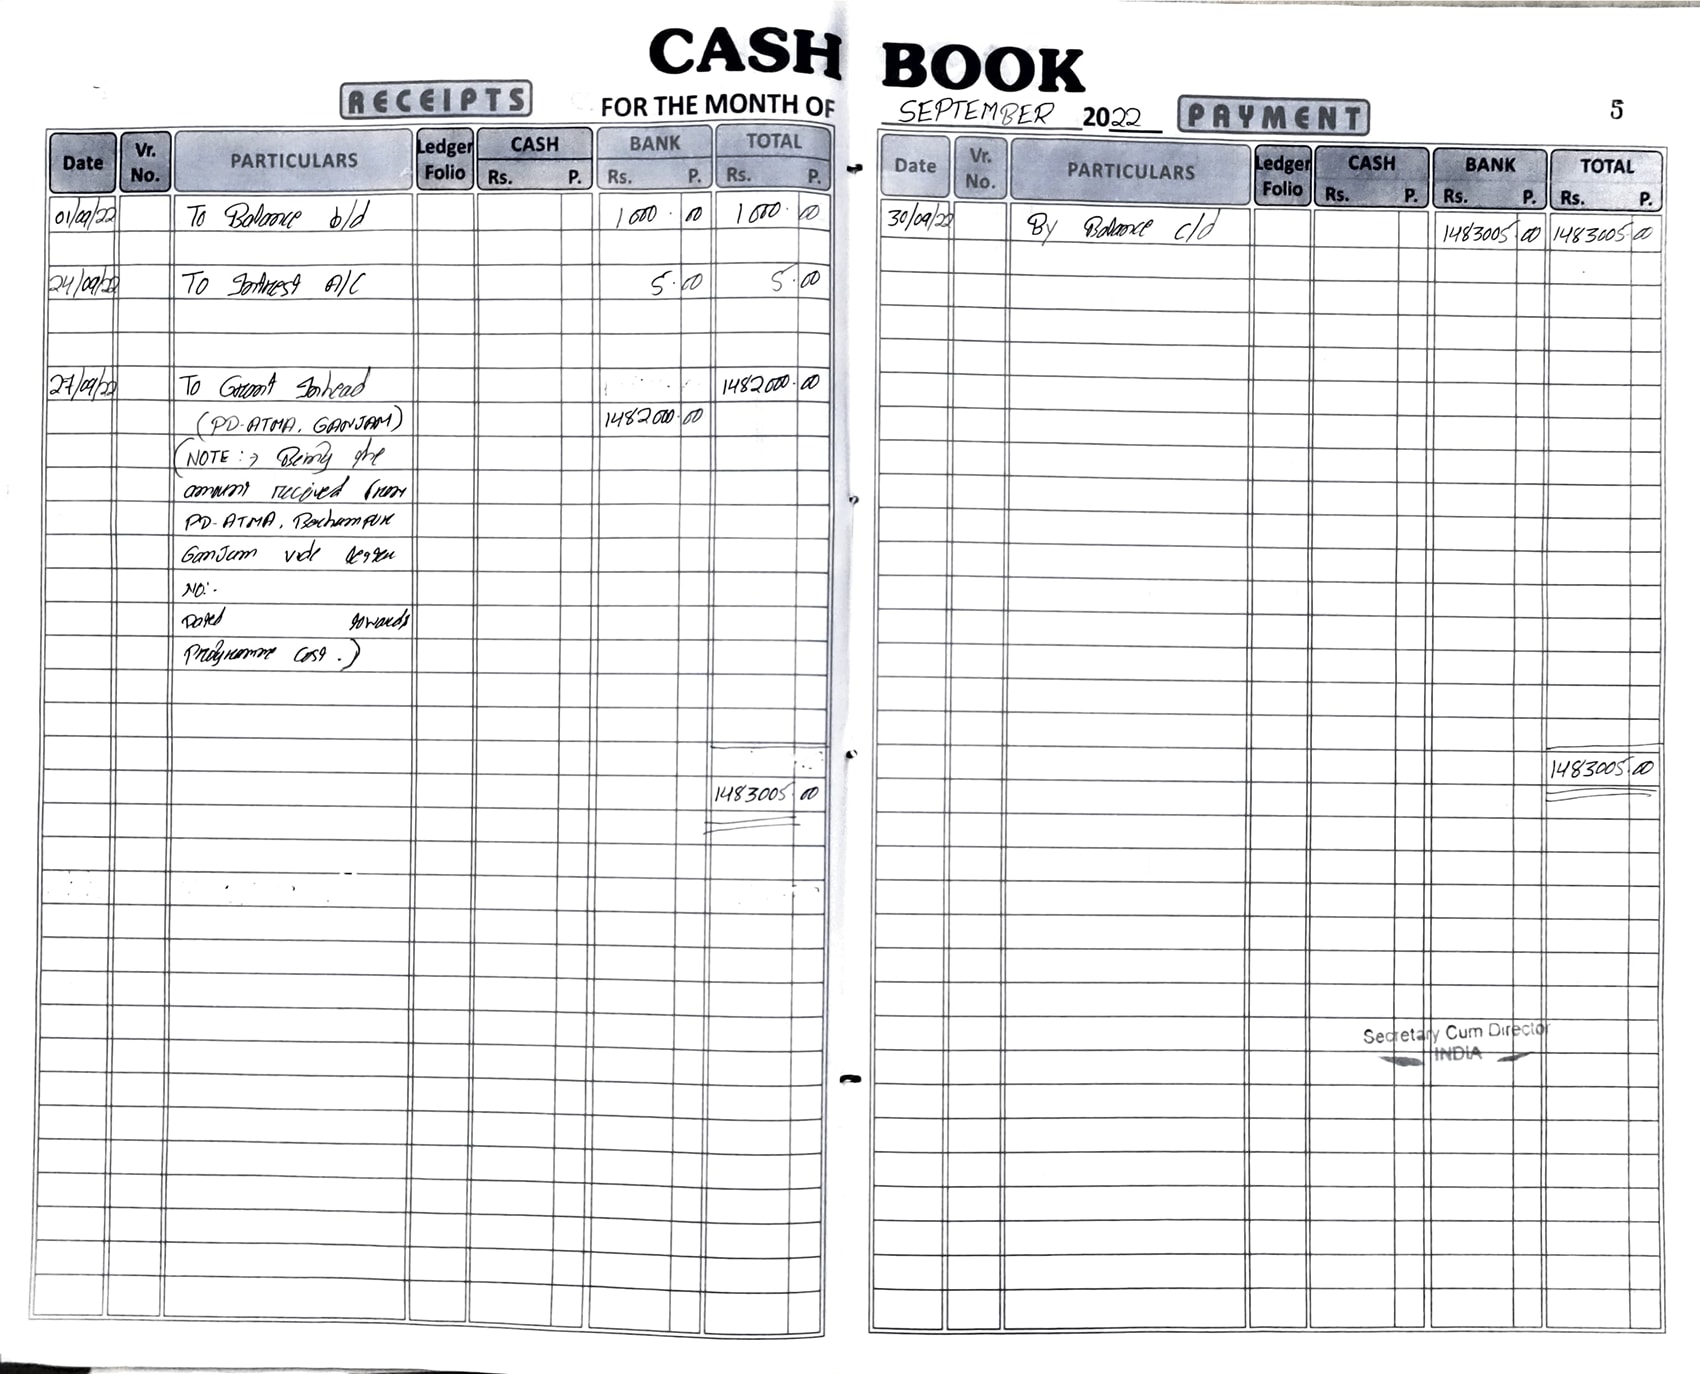 CASH BOOK
RECEIPTS FOR THE MONTH OF SEPTEMBER 2022 PAYMENT 5
Date Vr. No. PARTICULARS Ledger Folio CASH Rs. P. BANK Rs. P. TOTAL Rs. P.
01/09/22 To Balance b/d 1000.00 1000.00
24/09/22 To Intrest A/C 5.00 5.00
27/09/22 To Grant Inhead 1482000.00
(PD-ATMA, GANJAM) 1482000.00
(NOTE :→ Being the
amount received from
PD-ATMA, Berhampur
Ganjam vide letter
NO:-
Dated towards
Programme Cost.)
1483005.00
Date Vr. No. PARTICULARS Ledger Folio CASH Rs. P. BANK Rs. P. TOTAL Rs. P.
30/09/22 By Balance c/d 1483005.00 1483005.00
1483005.00
Secretary Cum Director
INDIA